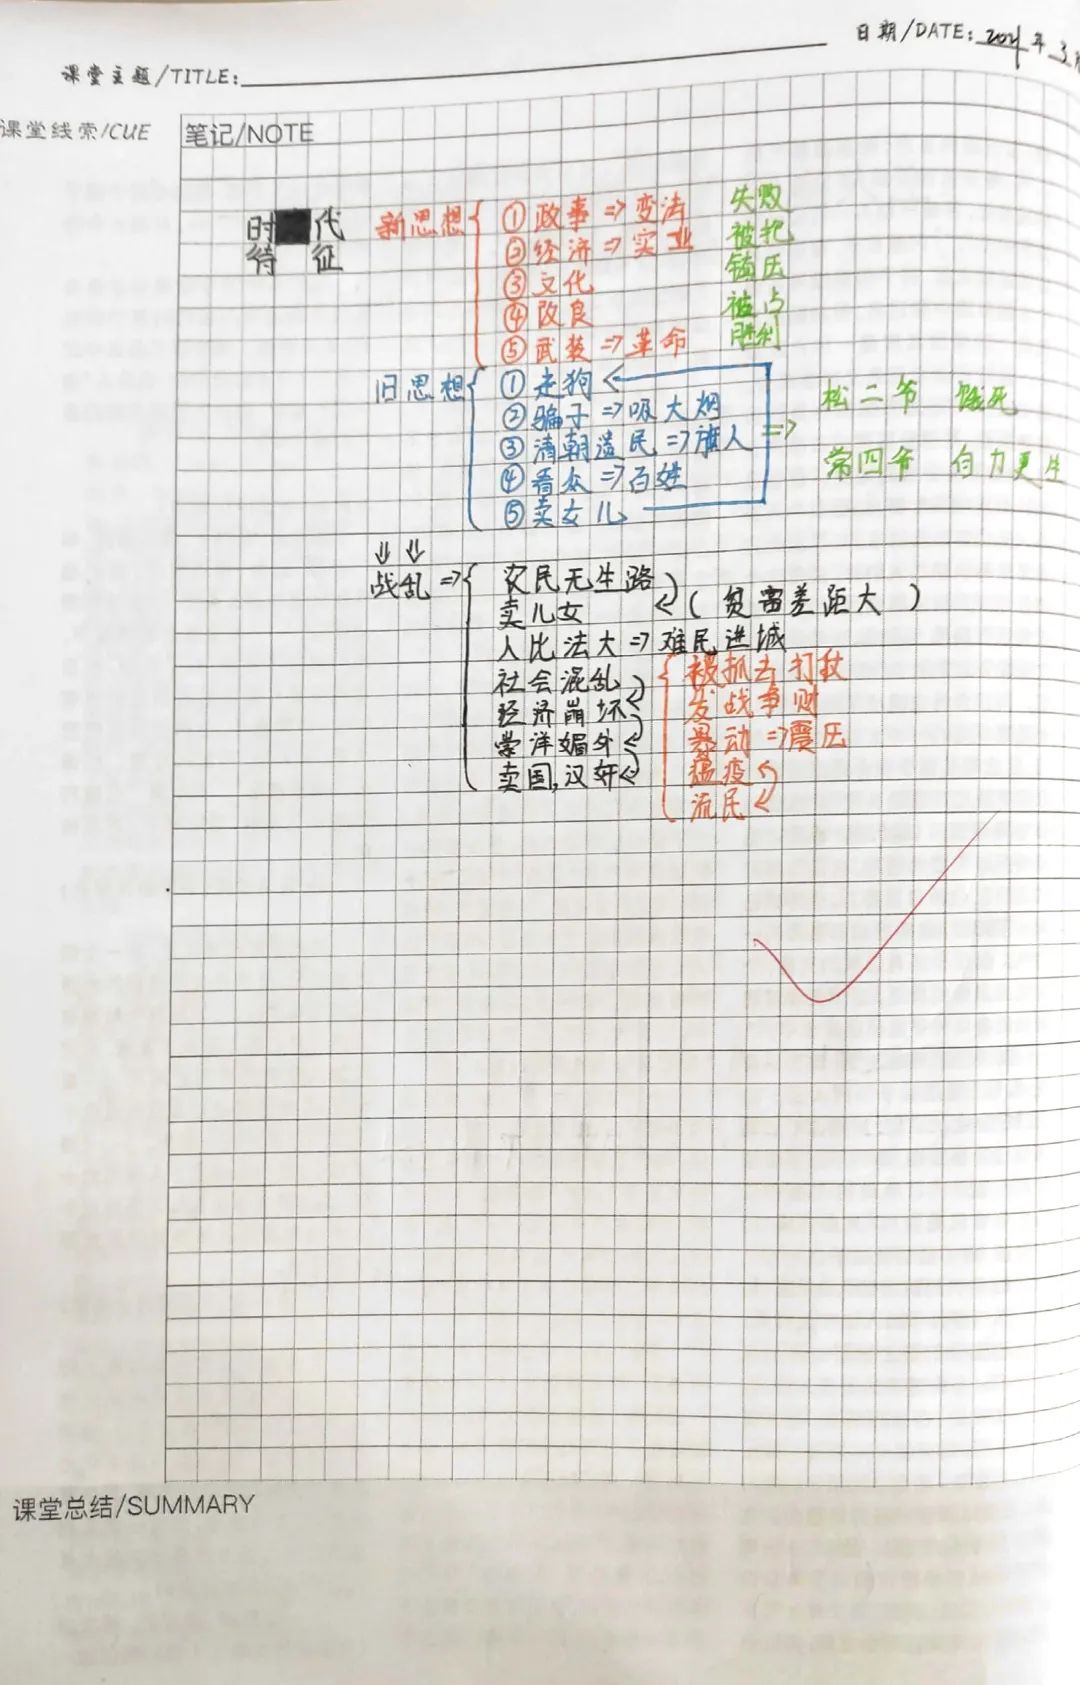 日期/DATE: 2021年3月
课堂主题/TITLE:
课堂线索/CUE
笔记/NOTE
时代
特征
新思想
①政事⇒变法 失败
②经济⇒实业 被把
③文化 镇压
④改良 被占
⑤武装⇒革命 胜利
旧思想
①走狗
②骗子⇒吸大烟
③清朝遗民⇒旗人
④看众⇒百姓
⑤卖女儿
⇒
松二爷 饿死
常四爷 自力更生
⇓⇓
战乱⇒
农民无生路
卖儿女 (贫富差距大)
人比法大⇒难民进城
社会混乱
经济崩坏
崇洋媚外
卖国,汉奸
被抓去打仗
发战争财
暴动⇒震压
瘟疫
流民
课堂总结/SUMMARY